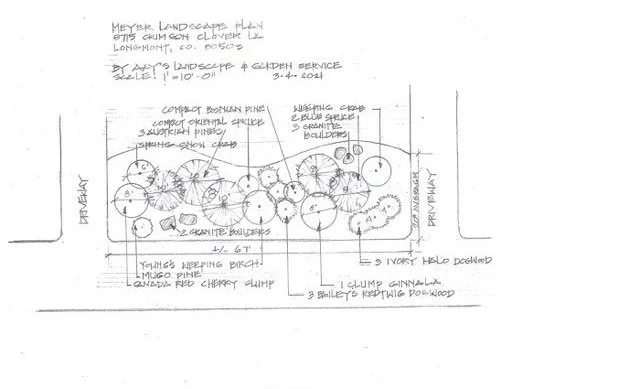 MEYER LANDSCAPE PLAN
8715 CRIMSON CLOVER LN
LONGMONT, CO. 80503
BY ALY'S LANDSCAPE & GARDEN SERVICE
SCALE: 1"=10'-0" 3.4.2021
COMPACT BOSNIAN PINE
COMPACT ORIENTAL SPRUCE
3 AUSTRIAN PINES
SPRING SNOW CRAB
WEEPING CRAB
2 BLUE SPRUCE
3 GRANITE
BOULDERS
DRIVEWAY
DRIVEWAY
20' AVERAGE
2 GRANITE BOULDERS
+/- 67'
YOUNG'S WEEPING BIRCH
MUGO PINE
CANADA RED CHERRY CLUMP
3 IVORY HALO DOGWOOD
1 CLUMP GINNALA
3 BAILEY'S REDTWIG DOGWOOD